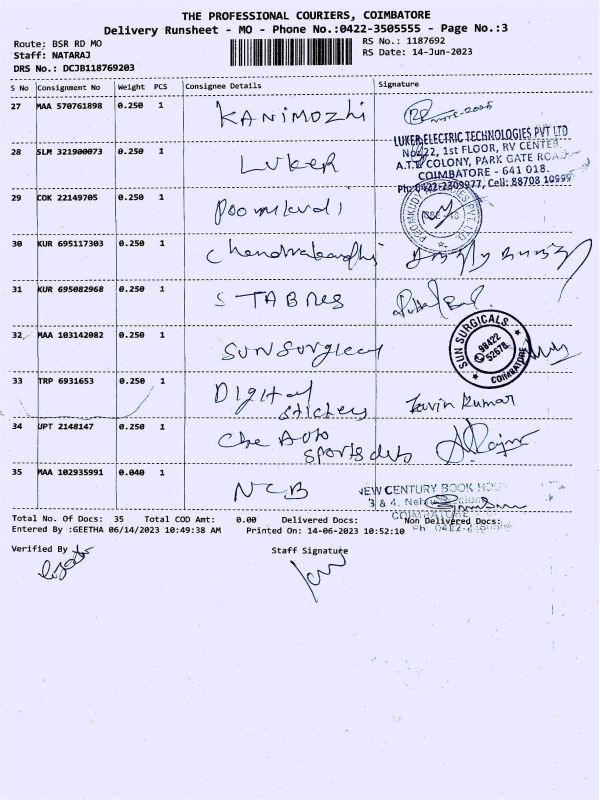 THE PROFESSIONAL COURIERS, COIMBATORE
Delivery Runsheet - MO - Phone No.:0422-3505555 - Page No.:3
Route: BSR RD MO
RS No.: 1187692
Staff: NATARAJ
RS Date: 14-Jun-2023
DRS No.: DCJB118769203
S No Consignment No Weight PCS Consignee Details Signature
27 MAA 570761898 0.250 1 KANIMOZHI
28 SLM 321900073 0.250 1 LUKER
LUKER ELECTRIC TECHNOLOGIES PVT LTD
No.22, 1st FLOOR, RV CENTER
A.T.T COLONY, PARK GATE ROAD
COIMBATORE - 641 018.
Ph: 0422-2309977, Cell: 88708 10999
29 COK 22149705 0.250 1 Poomkudi
30 KUR 695117303 0.250 1 Chendrakandhi
31 KUR 695082968 0.250 1 S TABRES
32 MAA 103142082 0.250 1 SUNSurgical
SUN SURGICALS
98422
52678
COIMBATORE
33 TRP 6931653 0.250 1 Digital stickers Kavin Kumar
34 UPT 2148147 0.250 1 Cbe Auto
sports
35 MAA 102935991 0.040 1 NCB
NEW CENTURY BOOK HOUSE
3 & 4, Nehru
COIMBATORE
Ph 0422-2
Total No. Of Docs: 35 Total COD Amt: 0.00 Delivered Docs: Non Delivered Docs:
Entered By :GEETHA 06/14/2023 10:49:38 AM Printed On: 14-06-2023 10:52:10
Verified By Staff Signature